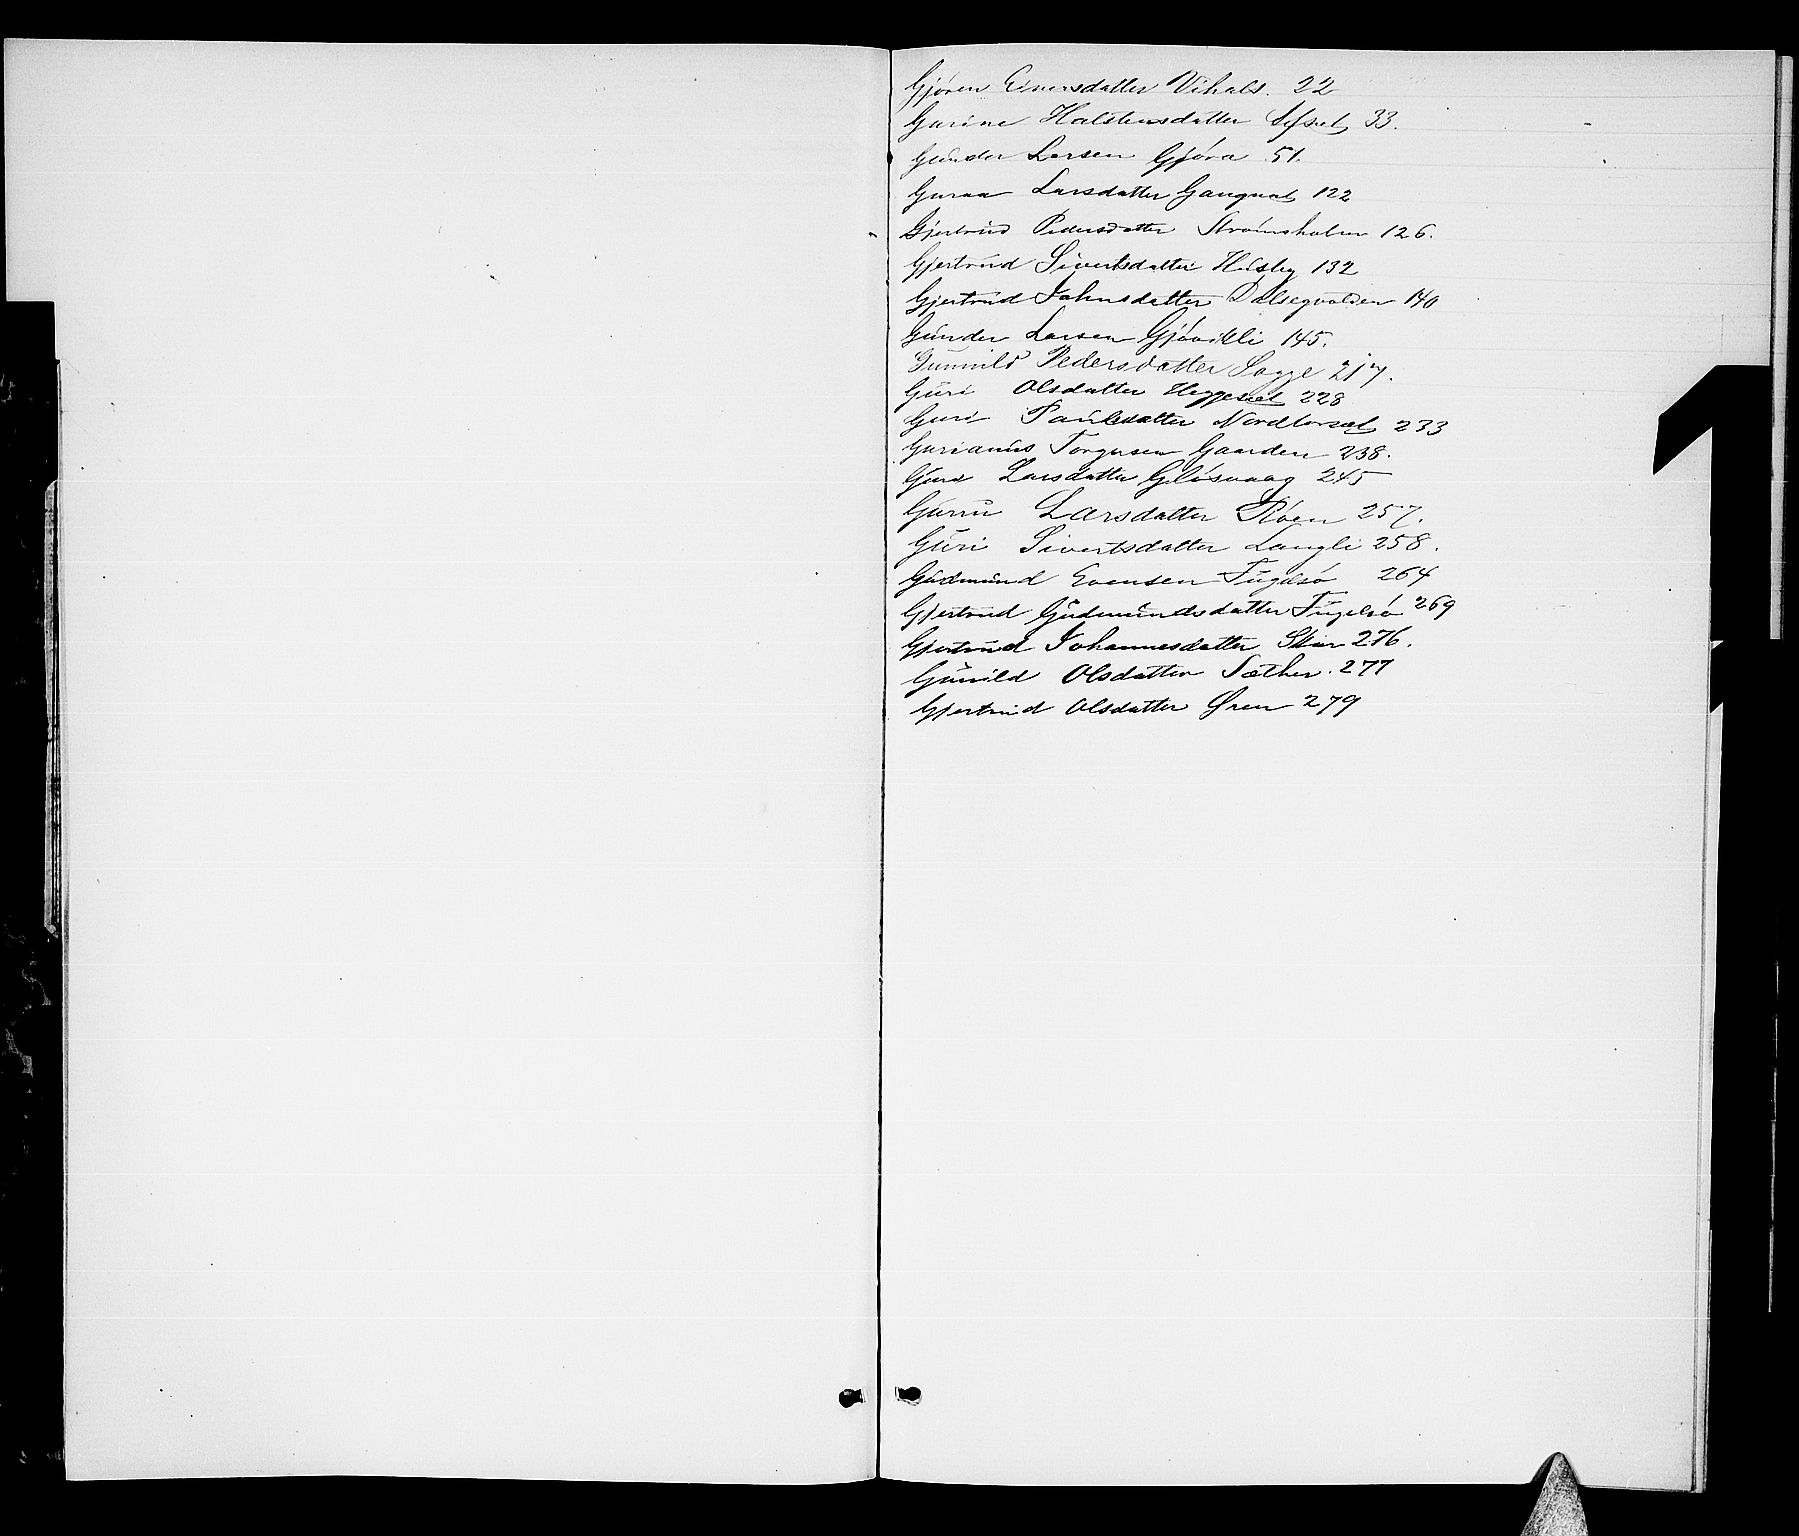 Gjøren Einersdatter Vihals. 22
Gurine Halstensdatter 33.
Gunder Larsen Gjøra 51.
Guraa Larsdatter Gangnat 122
Gjertrud Pedersdatter Strømsholm 126.
Gjertrud Sivertsdatter Husby 132
Gjertrud Johnsdatter Dalsegvolden 140
Gunder Larsen Gjøvikli 145.
Gunnild Pedersdatter Sogge 217.
Guri Olsdatter Heggeset 228
Guri Paulsdatter Nordlorset 233
Gurianus Torgersen Gaarden 238.
Guri Larsdatter Gløsvaag 245
Guru Larsdatter Røen 257.
Guri Sivertsdatter Langli 258.
Gudmund Evensen Fugelsø 264
Gjertrud Gudmundsdatter Fugelsø 269
Gjertrud Johannesdatter Skar 276.
Gunild Olsdatter Sæther. 277
Gjertrud Olsdatter Øren 279